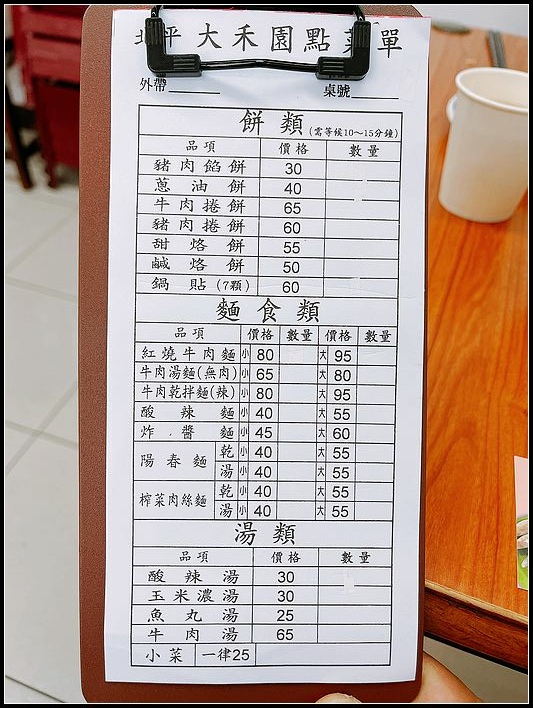 北平大禾園點菜單
外帶 桌號
餅類(需等候10~15分鐘)
品項 價格 數量
豬肉餡餅 30
蔥油餅 40
牛肉捲餅 65
豬肉捲餅 60
甜烙餅 55
鹹烙餅 50
鍋貼(7顆) 60
麵食類
品項 價格 數量 價格 數量
紅燒牛肉麵 小 80 大 95
牛肉湯麵(無肉) 小 65 大 80
牛肉乾拌麵(辣) 小 80 大 95
酸辣麵 小 40 大 55
炸醬麵 小 45 大 60
陽春麵 乾 小 40 大 55
湯 小 40 大 55
榨菜肉絲麵 乾 小 40 大 55
湯 小 40 大 55
湯類
品項 價格 數量
酸辣湯 30
玉米濃湯 30
魚丸湯 25
牛肉湯 65
小菜 一律25